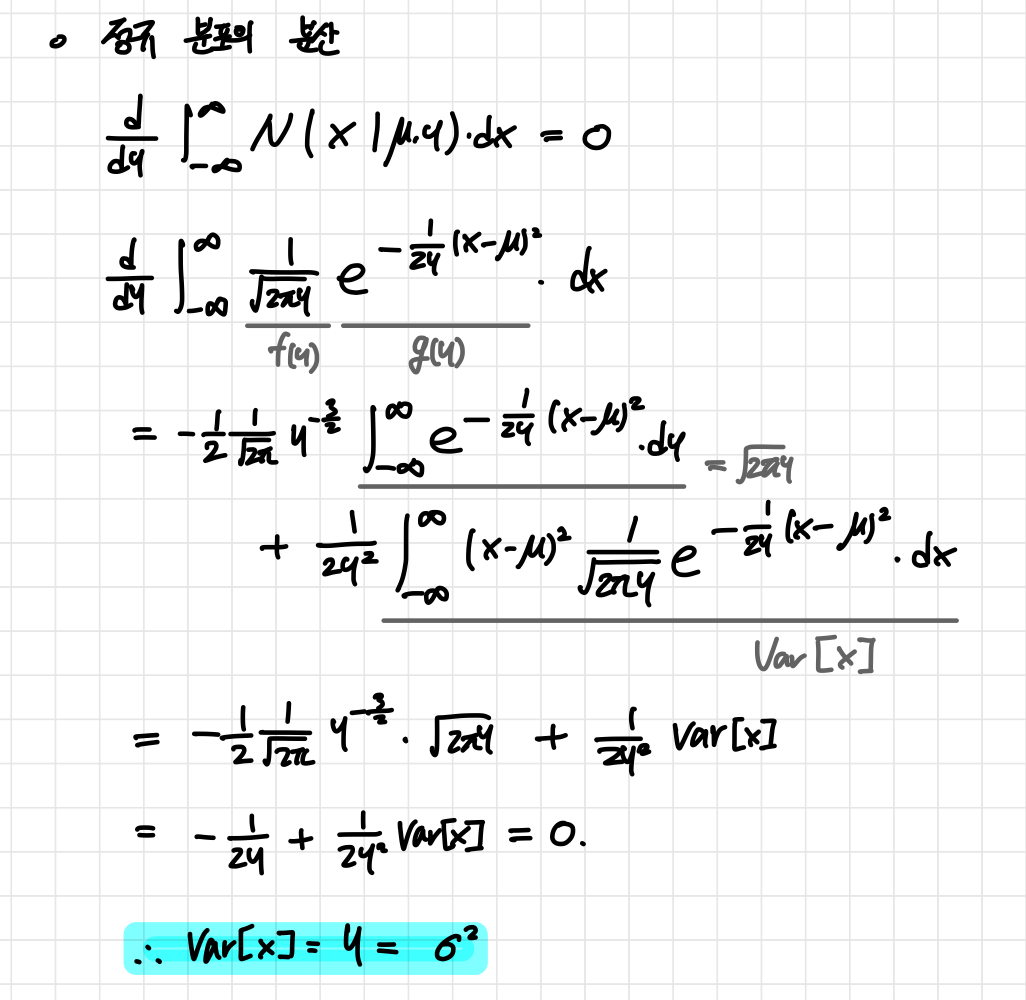 ∘ 정규 분포의 분산
d/dy ∫_{-∞}^{∞} N(x|μ.y)·dx = 0
d/dy ∫_{-∞}^{∞} 1/√(2πy) e^{-1/(2y) (x-μ)²} · dx
f(y) g(y)
= -1/2 1/√(2π) y^{-3/2} ∫_{-∞}^{∞} e^{-1/(2y) (x-μ)²} ·dy = √(2πy)
+ 1/(2y²) ∫_{-∞}^{∞} (x-μ)² 1/√(2πy) e^{-1/(2y) (x-μ)²} · dx
Var[x]
= -1/2 1/√(2π) y^{-3/2} · √(2πy) + 1/(2y²) Var[x]
= -1/(2y) + 1/(2y²) Var[x] = 0.
∴ Var[x] = y = σ²